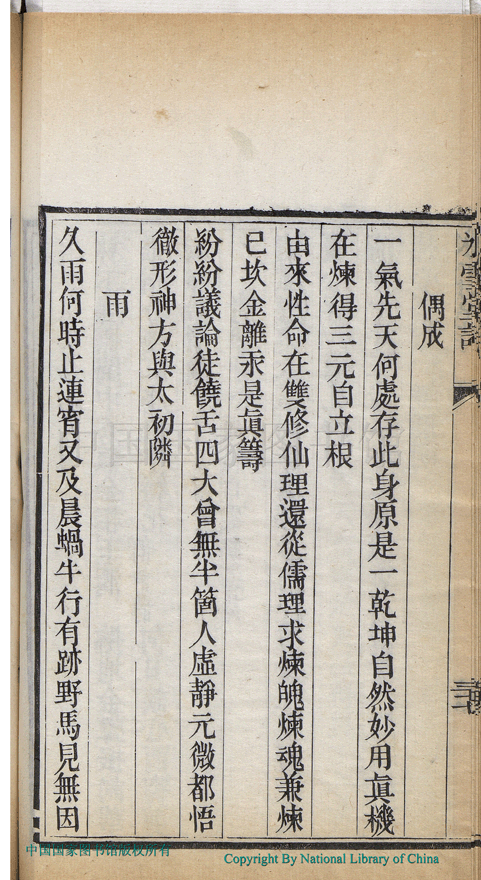 冰雪堂詩
偶成
一氣先天何處存此身原是一乾坤自然妙用真機
在煉得三元自立根
由來性命在雙修仙理還從儒理求煉魄煉魂兼煉
已坎金離汞是真籌
紛紛議論徒饒舌四大曾無半箇人虛靜元微都悟
徹形神方與太初隣
雨
久雨何時止連宵又及晨蝸牛行有跡野馬見無因
中国国家图书馆版权所有
Copyright By National Library of China